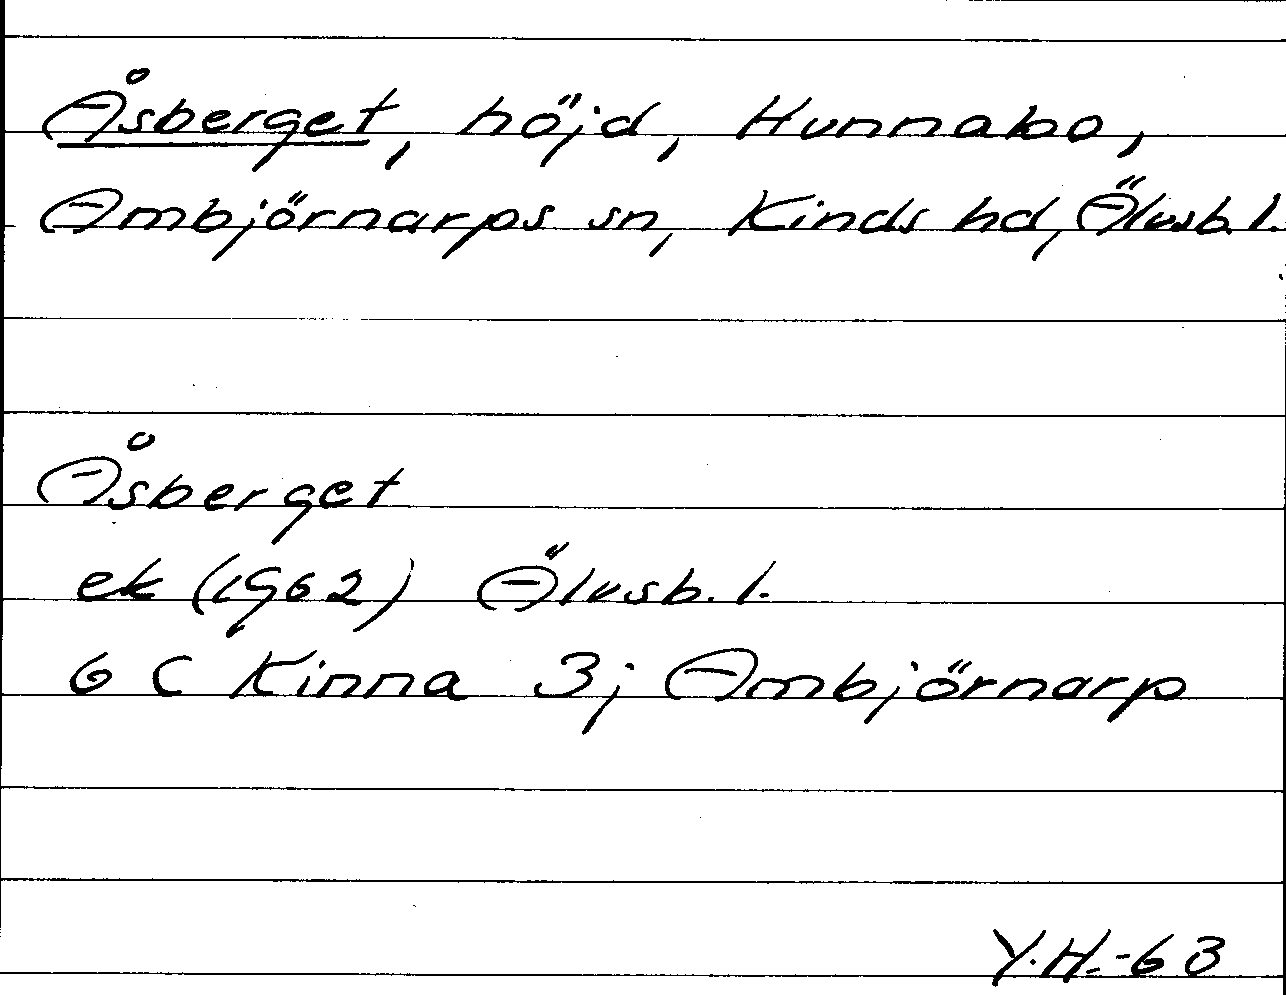 Åsberget, höjd, Hunnabo,
Ambjörnarps sn, Kinds hd, Älvsb. l.
Åsberget
ek (1962) Älvsb. l.
6 C Kinna 3j Ambjörnarp
Y.H.-63